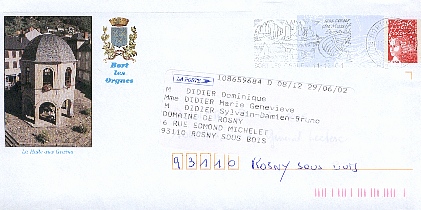 Bort
les
Orgues
LA POSTE
108659684 D 08/12 29/06/02
M DIDIER Dominique
Mme DIDIER Marie Geneviève
M DIDIER Sylvain-Damien-Bruno
DOMAINE DE ROSNY
6 RUE EDMOND MICHELET
93110 ROSNY SOUS BOIS
La Halle aux Grains
93110 ROSNY SOUS BOIS